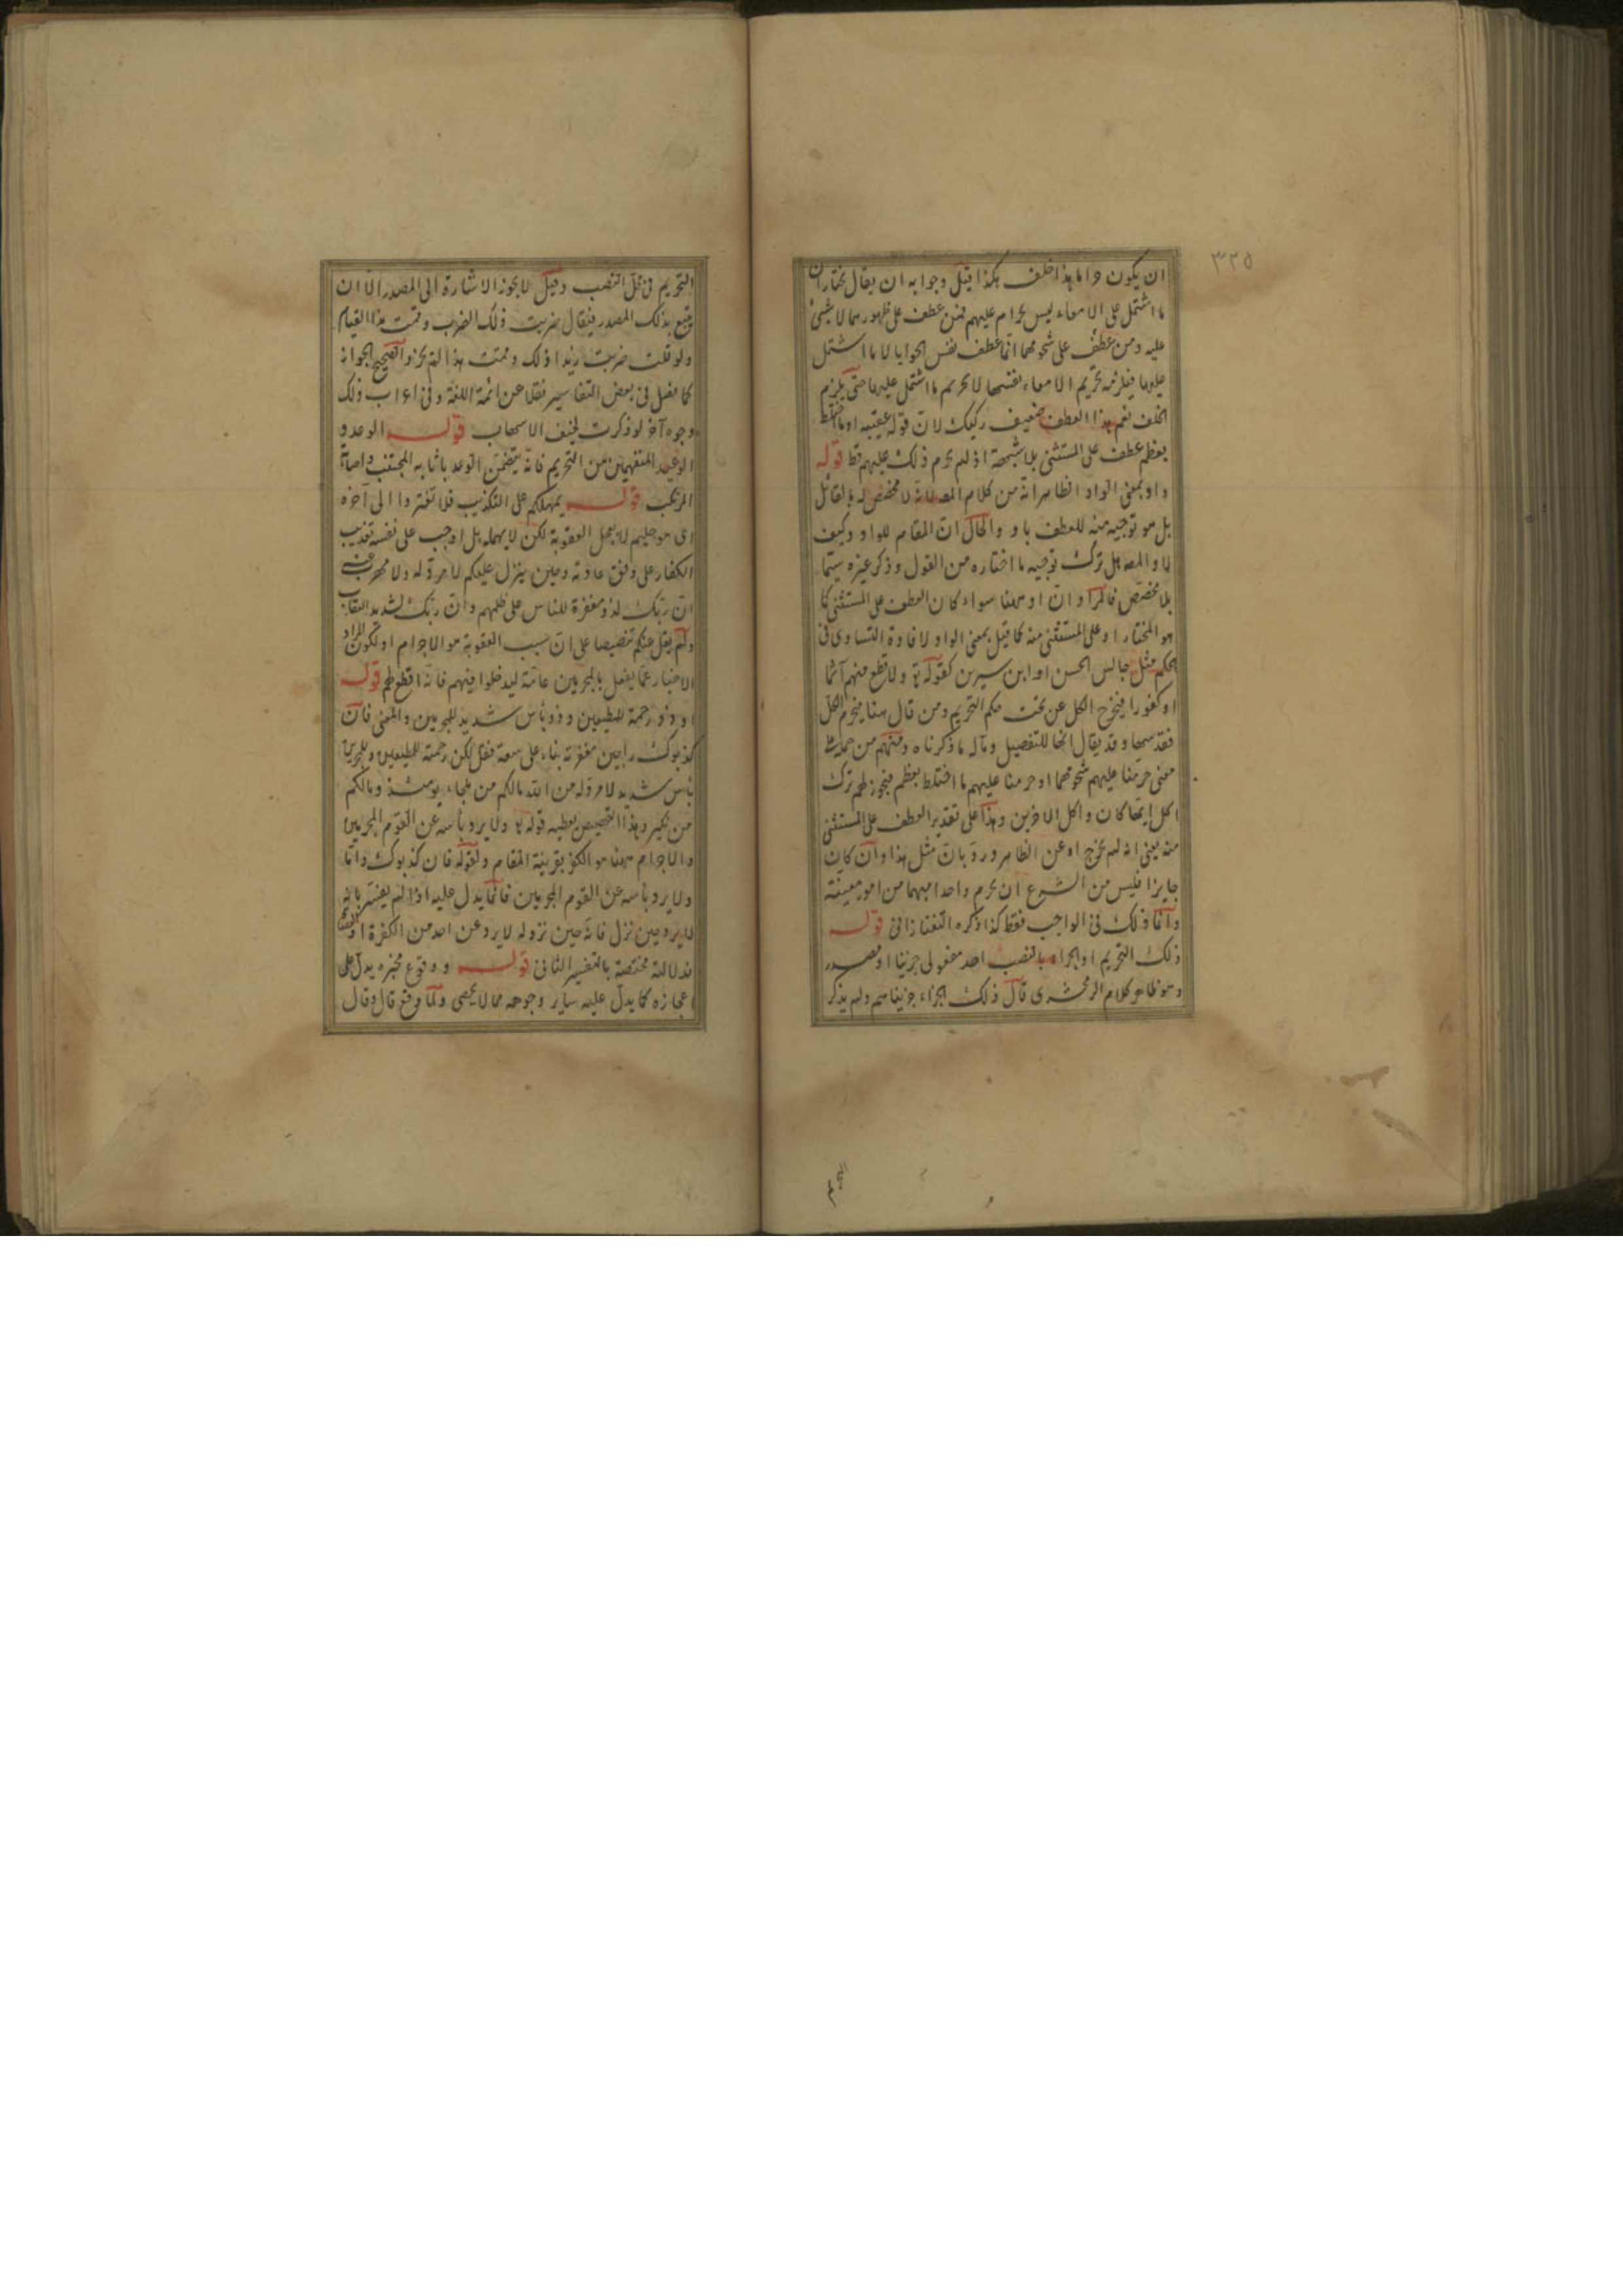 ٣٢٥
ان يكون حراما هذا خلف هكذا قيل وجوابه ان يقال نختار ان
ما اشتمل على الامعاء ليس بحرام عليهم فمن عطف على ظهورهما لا شيئ
عليه ومن عطف على شحومهما انما عطف نفس الحوايا لا ما اشتمل
عليها فيلزمه تحريم الامعاء نفسها لا تحريم ما اشتمل عليها حتى يلزم
الخلف نعم هذا العطف ضعيف ركيك لان قوله عقيبه او ما اختلط
بعظم عطف على المستثنى بلا شبهة اذ لم يحرم ذلك عليهم قط قوله
واو بمعنى الواو الظاهر انه من كلام المصـ لانه لا مخصص له بالقائل
بل هو توجيه منه للعطف باو والحال ان المقام للواو وكيف
لا والمصـ هل ترك توجيه ما اختاره من القول وذكر غيره سيما
بلا مخصص فالمراد ان او ههنا سواء كان العطف على المستثنى كما
هو المختار او على المستثنى منه كما قيل بمعنى الواو لافادة التساوى فى
الحكم مثل جالس الحسن او ابن سيرين كقوله تع ولا تطع منهم آثما
او كفورا فيخرج الكل عن تحت حكم التحريم ومن قال هنا فيحرم الكل
فقد سها وقد يقال انها للتفصيل ومآله ما ذكرناه ومنهم من حمله على
معنى حرمنا عليهم شحومهما او حرمنا عليهم ما اختلط بعظم فيجوز لهم ترك
اكل ايتها كان واكل الآخرين وهذا على تقدير العطف على المستثنى
منه يعنى انه لم يخرج او عن الظاهر ورد بان مثل هذا وان كان
جايزا فليس من الشرع ان يحرم واحدا مبهما من امور معينة
وانما ذلك فى الواجب فقط كذا ذكره التفتازانى قوله
ذلك التحريم او الجزاء بالنصب احد مفعولى جزينا او مصدر
وهو ظاهر كلام الزمخشرى قال ذلك الجزاء جزيناهم ولم يذكر
التحريم
التحريم فى محل النصب وقيل لا يجوز الاشارة الى المصدر الا ان
يتبع بذلك المصدر فيقال ضربت ذلك الضرب وقمت هذا القيام
ولو قلت ضربت زيدا ذلك وقمت هذا لم يجز والصحيح الجواز
كما نقل فى بعض التفاسير نقلا عن ائمة اللغة وفى اعراب ذلك
وجوه آخر لو ذكرت لخيف الاسهاب قوله الوعد و
الوعيد المتفهمين من التحريم فانه يتضمن الوعد باثابه المجتنب واصابة
المرتكب قوله يمهلكم على التكذيب فلا تغتروا الى آخره
اى هو حليم لا يعجل العقوبة لكن لا يهمله بل اوجب على نفسه تعذيب
الكفار على وفق عادته وحين ينزل عليكم لا مرد له ولا مهرب عنه
ان ربك لذو مغفرة للناس على ظلمهم وان ربك لشديد العقاب
ولم يقل عنكم تنصيصا على ان سبب العقوبة هو الاجرام او لكون المراد
الاخبار عما يفعل بالمجرمين عامة ليدخلوا فيهم فانه اقطع لهم قوله
او ذو رحمة للمطيعين وذو بأس شديد للمجرمين والمعنى فان
كذبوك راجين مغفرته بناء على سعة فقل لكن رحمة للمطيعين وللمجرمين
بأس شديد لا مرد له من الله مالكم من ملجاء يومئذ ومالكم
من نكير وهذا التخصيص يعطيه قوله تع ولا يرد بأسه عن القوم المجرمين
والاجرام ههنا هو الكفر بقرينة المقام ولقوله فان كذبوك واما
ولا يرد بأسه عن القوم المجرمين فانما يدل عليه اذا لم يفسر بانه
لا يرد حين نزل فانه حين نزوله لا يرد عن احد من الكفرة او
فدلالته مختصة بالتفسير الثانى قوله ووقوع مخبره يدل على
اعجازه كما يدل عليه ساير وجوهه مما لا يحصى ولما وقع قال وقال